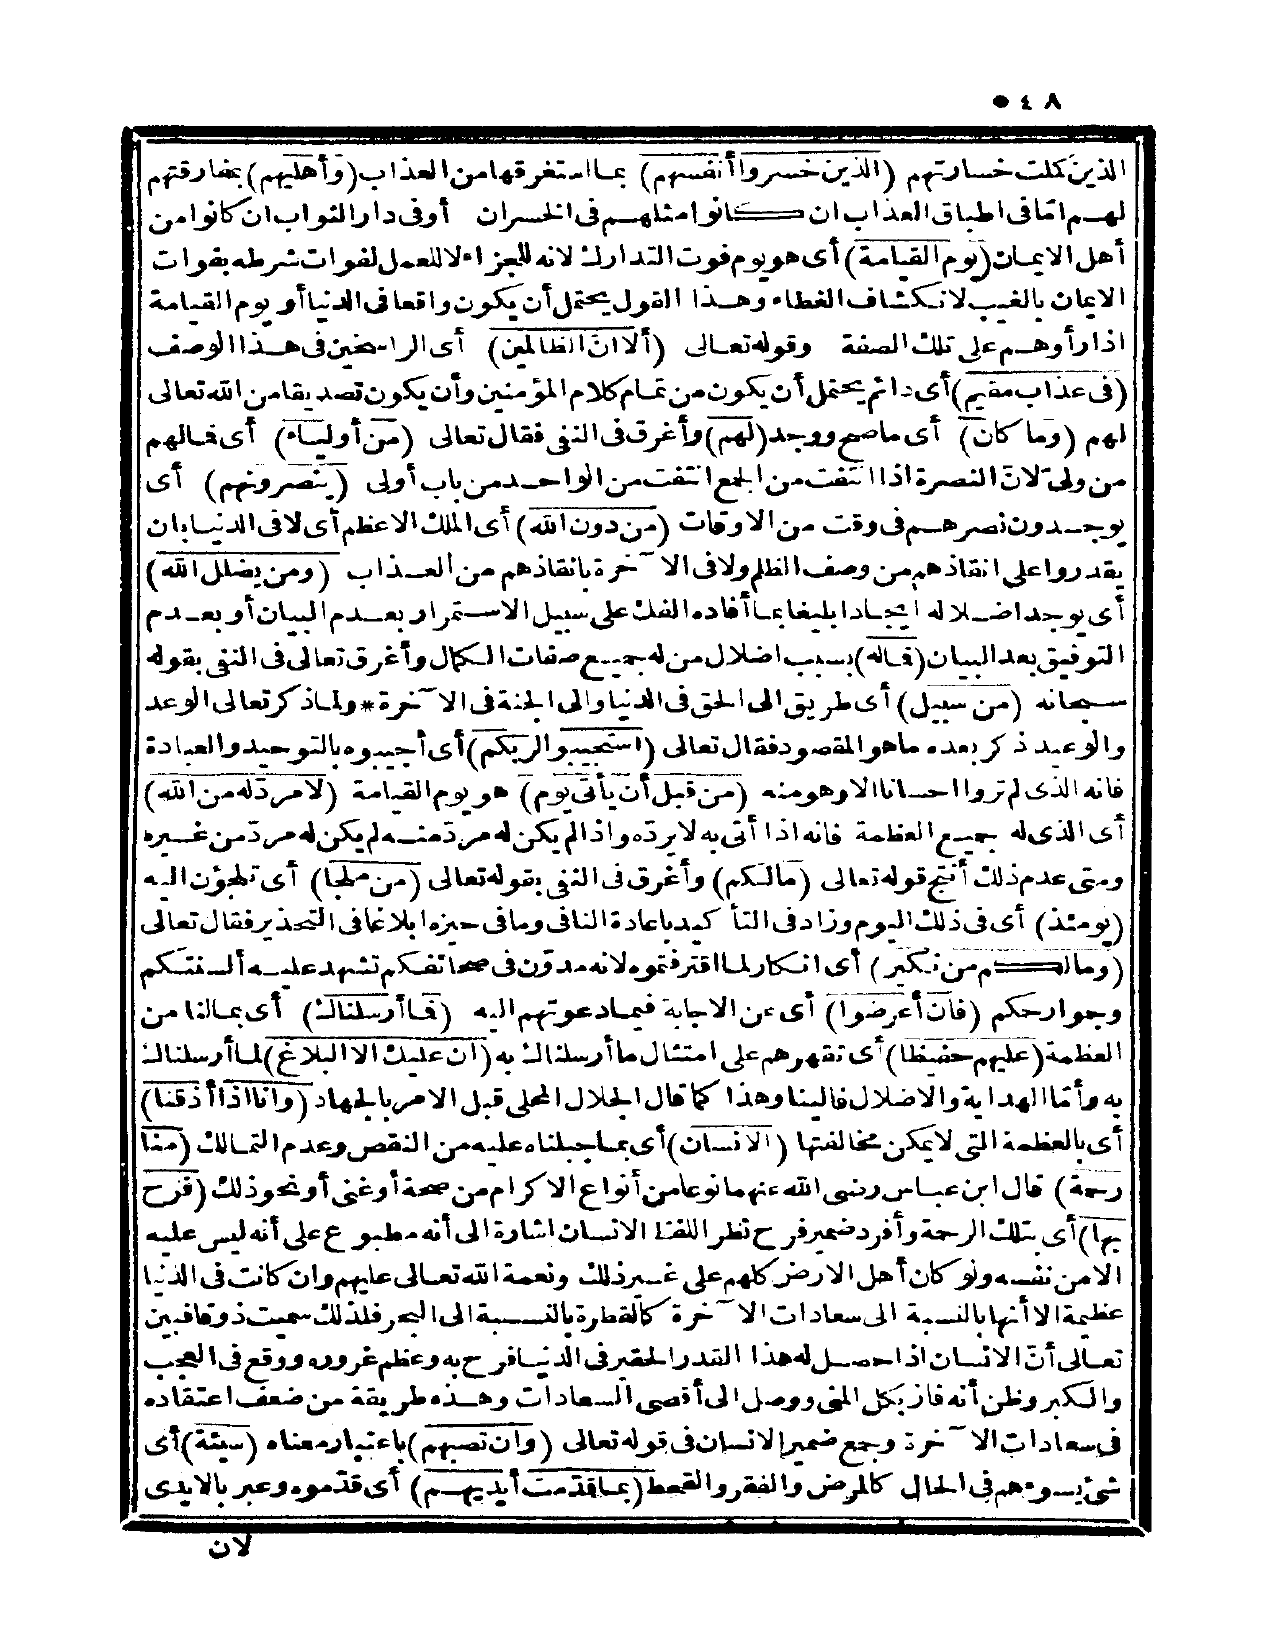 ٥٤٨
الذين كملت خسارتهم (الذين خسروا أنفسهم) بما استغرقها من العذاب (وأهليهم) بمفارقتهم
لهم امّا فى اطباق العذاب ان كانوا مثلهم فى الخسران أو فى دار الثواب ان كانوا من
أهل الايمان (يوم القيامة) أى هو يوم فوت التدارك لانه للجزاء لا للعمل لفوات شرطه بفوات
الايمان بالغيب لانكشاف الغطاء وهذا القول يحتمل أن يكون واقعا فى الدنيا أو يوم القيامة
اذا رأوهم على تلك الصفة وقوله تعالى (ألا انّ الظالمين) أى الراسخين فى هذا الوصف
(فى عذاب مقيم) أى دائم يحتمل أن يكون من تمام كلام المؤمنين وأن يكون تصديقا من الله تعالى
لهم (وما كان) أى ما صح ووجد (لهم) وأغرق فى النفى فقال تعالى (من أولياء) أى فما لهم
من ولىّ لانّ النصرة اذا انتفت من الجمع انتفت من الواحد من باب أولى (ينصرونهم) أى
يوجدون نصرهم فى وقت من الاوقات (من دون الله) أى الملك الاعظم أى لا فى الدنيا بان
يقدروا على انقاذهم من وصف الظلم ولا فى الآخرة بانقاذهم من العذاب (ومن يضلل الله)
أى يوجد اضلاله ايجادا بليغا بما أفاده الفك على سبيل الاستمرار بعدم البيان أو بعدم
التوفيق بعد البيان (فماله) بسبب اضلال من له جميع صفات الكمال وأغرق تعالى فى النفى بقوله
سبحانه (من سبيل) أى طريق الى الحق فى الدنيا والى الجنة فى الآخرة * ولما ذكر تعالى الوعد
والوعيد ذكر بعده ما هو المقصود فقال تعالى (استجيبوا لربكم) أى أجيبوه بالتوحيد والعبادة
فانه الذى لم تروا احسانا الا وهو منه (من قبل أن يأتى يوم) هو يوم القيامة (لا مردّ له من الله)
أى الذى له جميع العظمة فانه اذا أتى به لا يردّه واذا لم يكن له مردّ منه لم يكن له مردّ من غيره
ومتى عدم ذلك أنتج قوله تعالى (مالكم) وأغرق فى النفى بقوله تعالى (من ملجأ) أى تلجؤن اليه
(يومئذ) أى فى ذلك اليوم وزاد فى التأكيد باعادة النافى وما فى حيزه ابلاغا فى التحذير فقال تعالى
(ومالكم من نكير) أى انكار لما اقترفتموه لانه مدوّن فى صحائفكم تشهد عليه ألسنتكم
وجوارحكم (فان أعرضوا) أى عن الاجابة فيما دعوتهم اليه (فما أرسلناك) أى بمالنا من
العظمة (عليهم حفيظا) أى تقهرهم على امتثال ما أرسلناك به (ان عليك الا البلاغ) لما أرسلناك
به وأمّا الهداية والاضلال فالينا وهذا كما قال الجلال المحلى قبل الامر بالجهاد (وانا اذا أذقنا)
أى بالعظمة التى لا يمكن مخالفتها (الانسان) أى بما جبلناه عليه من النقص وعدم التمالك (منا
رحمة) قال ابن عباس رضى الله عنهما نوعا من أنواع الاكرام من صحة أو غنى أو نحو ذلك (فرح
بها) أى بتلك الرحمة وأفرد ضمير فرح نظر اللفظ الانسان اشارة الى أنه مطبوع على أنه ليس عليه
الا من نفسه ولو كان أهل الارض كلهم على غير ذلك ونعمة الله تعالى عليهم وان كانت فى الدنيا
عظيمة الا أنها بالنسبة الى سعادات الآخرة كالقطرة بالنسبة الى البحر فلذلك سميت ذوقا فبين
تعالى أنّ الانسان اذا حصل له هذا القدر الحقير فى الدنيا فرح به وعظم غروره ووقع فى العجب
والكبر وظن أنه فاز بكل المنى ووصل الى أقصى السعادات وهذه طريقة من ضعف اعتقاده
فى سعادات الآخرة وجمع ضمير الانسان فى قوله تعالى (وان تصبهم) باعتبار معناه (سيئة) أى
شئ يسوءهم فى الحال كالمرض والفقر والقحط (بما قدّمت أيديهم) أى قدّموه وعبر بالايدى
لان